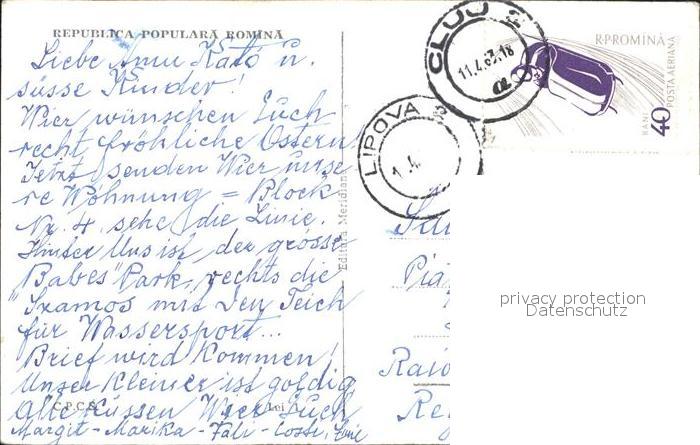 REPUBLICA POPULARĂ ROMÎNĂ
Liebe Anu Kató u.
süsse Kinder!
Wier wünschen Euch
recht fröhliche Ostern
Jetzt senden Wier unse
re Wohnung = Block
Nr. 4. sehe die Linie.
Hinter Uns ist der grosse
"Babes" Park, rechts die
"Szamos mit den Teich
für Wassersport...
Brief wird kommen!
Unser Kleiner ist goldig
Alle küssen Wier Euch
Margit - Marika - Fäli -
C.P.C.S.
Lei 1
Editura Meridiane
CLUJ 2
11.4.63.18
LIPOVA 2
R.P.ROMÎNĂ
POSTA AERIANA
BANI 40
Piaț
Raio
Re
privacy protection
Datenschutz